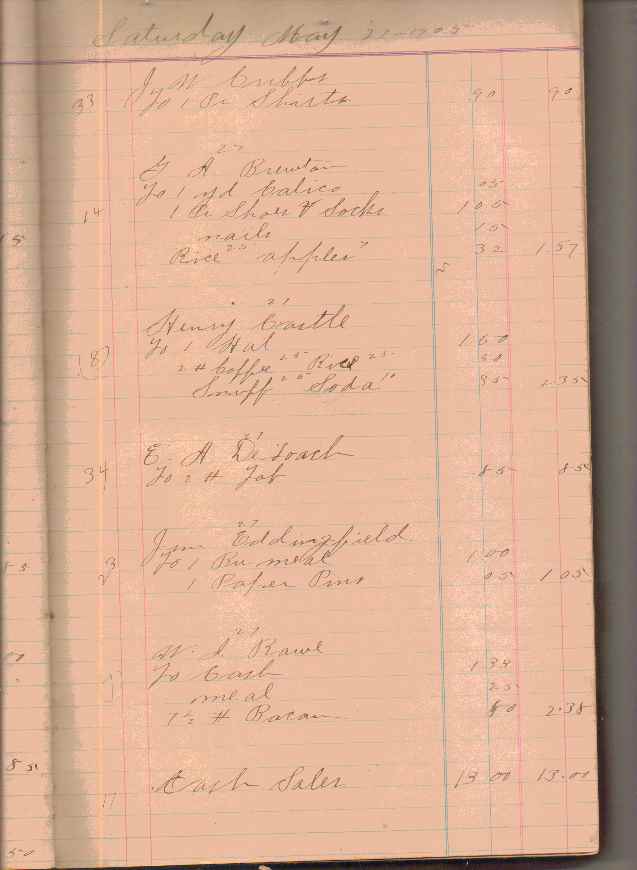 Saturday May 27-1905
33 J. W. Cribbs
To 1 Pr Shirts 90 90
27
G A Brewton
To 1 yd Calico 05
14 1 Pr Shoes & Socks 1 05
15 nails 15
Rice 25 apples 7 32 1.57
27
Henry Castle
To 1 Hat 1 00
(8) 2 # Coffee 25 Rice 25 50
Snuff 25 Soda 10 85 2.35
27
34 E. A. DeLoach
To 2 # Tob 85 85
27
Jim Eddingfield
To 1 Bu meal 1.00
23 1 Paper Pins 05 1 05
27
W. J. Rowe
To Cash 1 33
meal 25
7 1/2 # Bacon 80 2.38
Cash Sales 13 00 13.00
17
00
8 50
50